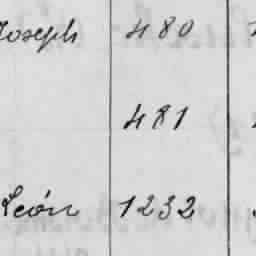 Joseph 480
481
León 1232